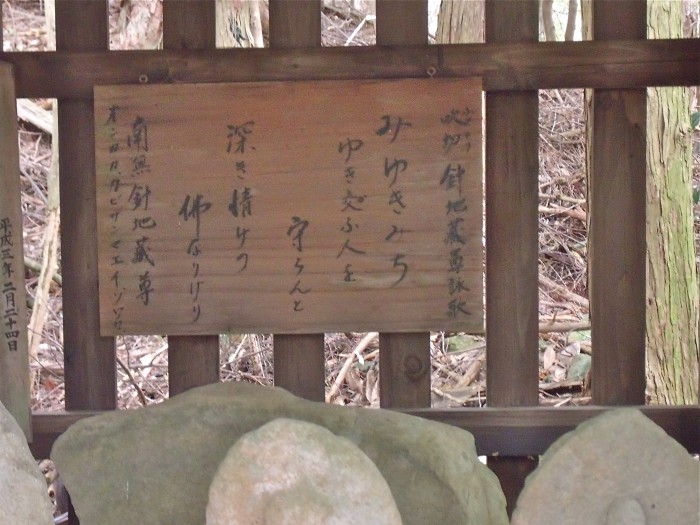 吹切 針地蔵尊詠歌
みゆきみち
ゆき交ふ人を
守らんと
深き情けの
佛なりけり
南無針地蔵尊
オンカカカビサンマエイソワカ
平成三年二月二十四日